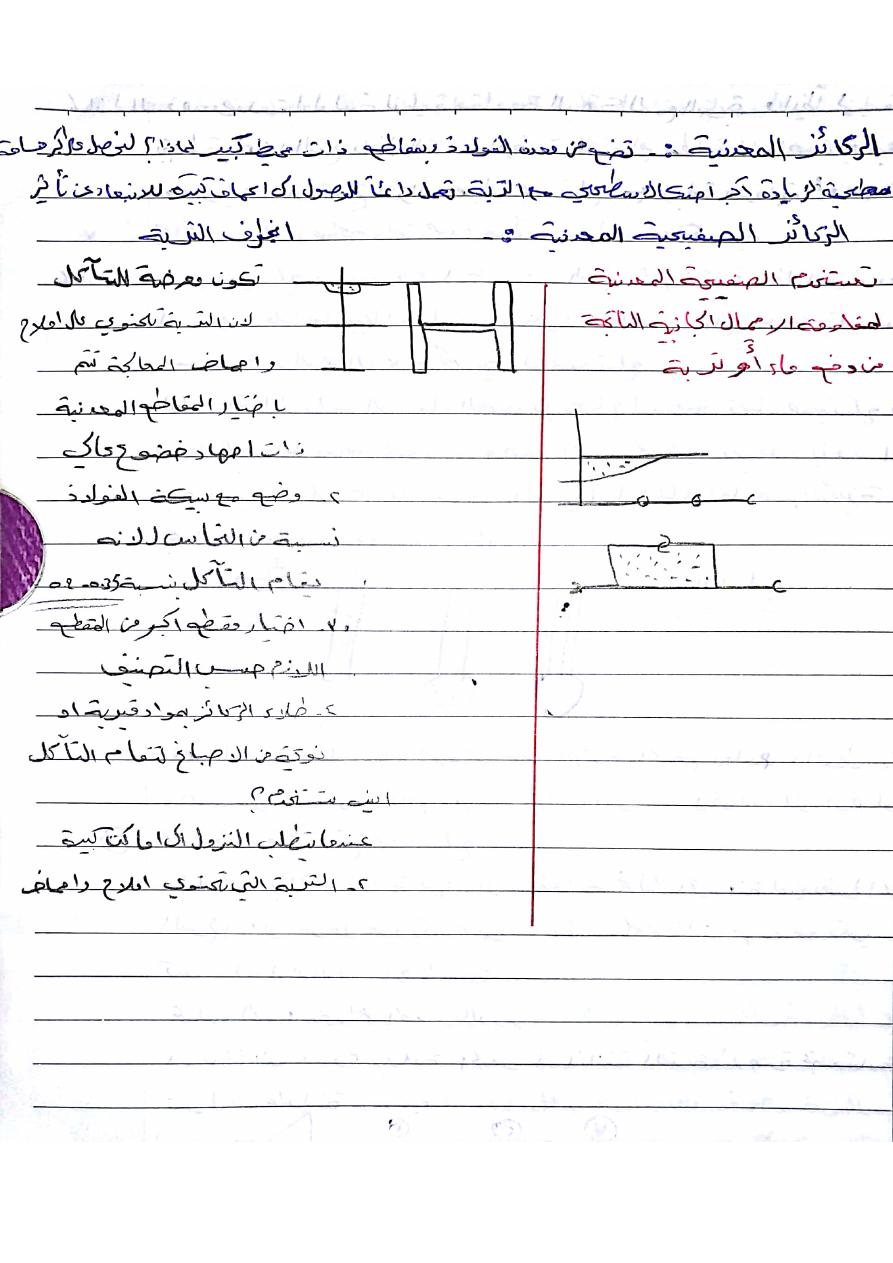 الركائز المعدنية :- تصنع من معدن الفولاذ وبمقاطع ذات محيط كبير لماذا؟ لنحصل على اكبر مساحة
سطحية لزيادة احتكاك سطحي مع التربة تعمل دائماً للوصول الى اعماق كبيرة للابتعاد عن تأثير
انجراف التربة
الركائز الصفيحية المعدنية :-
تستخدم الصفيحية المعدنية
لمقاومة الاحمال الجانبية الناتجة
من دفع ماء أو تربة
تكون معرضة للتآكل
لان التربة تحتوي على املاح
واحماض المعالجة تتم
باختيار المقاطع المعدنية
ذات اجهاد خضوع عالي
٢- وضع مع سبيكة الفولاذ
نسبة من النحاس لانه
يقاوم التآكل بنسبة
٣- اختيار مقطع اكبر من المقطع
اللازم حسب التصنيف
٤- طلاء الركائز بمواد قيرية او
نوعية من الاصباغ لتقاوم التآكل
اين تستخدم؟
عندما يتطلب النزول الى اماكن كبيرة
٢- التربة التي تحتوي املاح واحماض